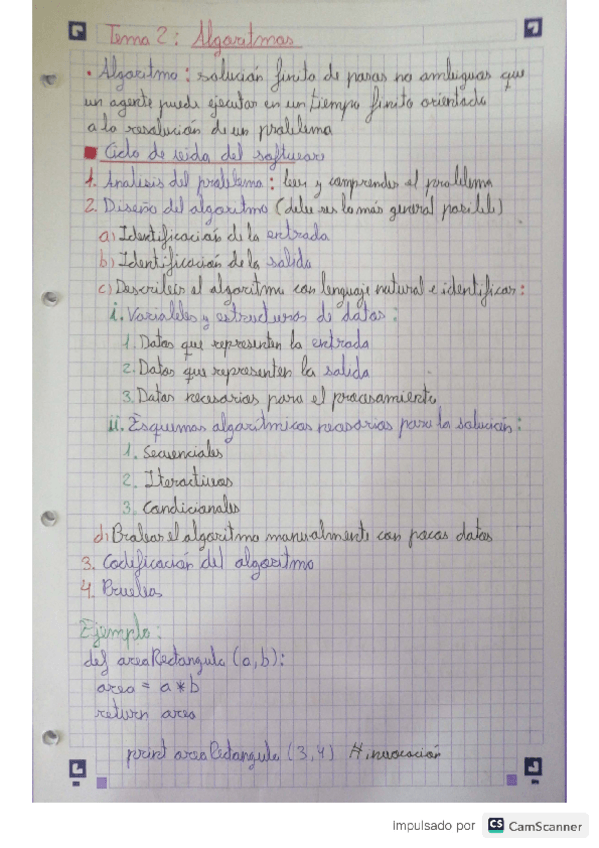 Tema 2: Algoritmos
• Algoritmo: solución finita de pasos no ambiguos que
un agente puede ejecutar en un tiempo finito orientado
a la resolución de un problema
■ Ciclo de vida del software
1. Analisis del problema: leer y comprender el problema
2. Diseño del algoritmo (debe ser lo más general posible)
a) Identificación de la entrada
b) Identificación de la salida
c) Describir el algoritmo con lenguaje natural e identificar:
i. Variables y estructuras de datos:
1. Datos que representen la entrada
2. Datos que representen la salida
3. Datos necesarios para el procesamiento
ii. Esquemas algorítmicos necesarios para la solución:
1. Secuenciales
2. Iteractivos
3. Condicionales
d) Probar el algoritmo manualmente con pocos datos
3. Codificación del algoritmo
4. Pruebas
Ejemplo:
def areaRectangulo (a,b):
area = a * b
return area
print areaRectangulo (3,4) # invocación
Impulsado por CS CamScanner